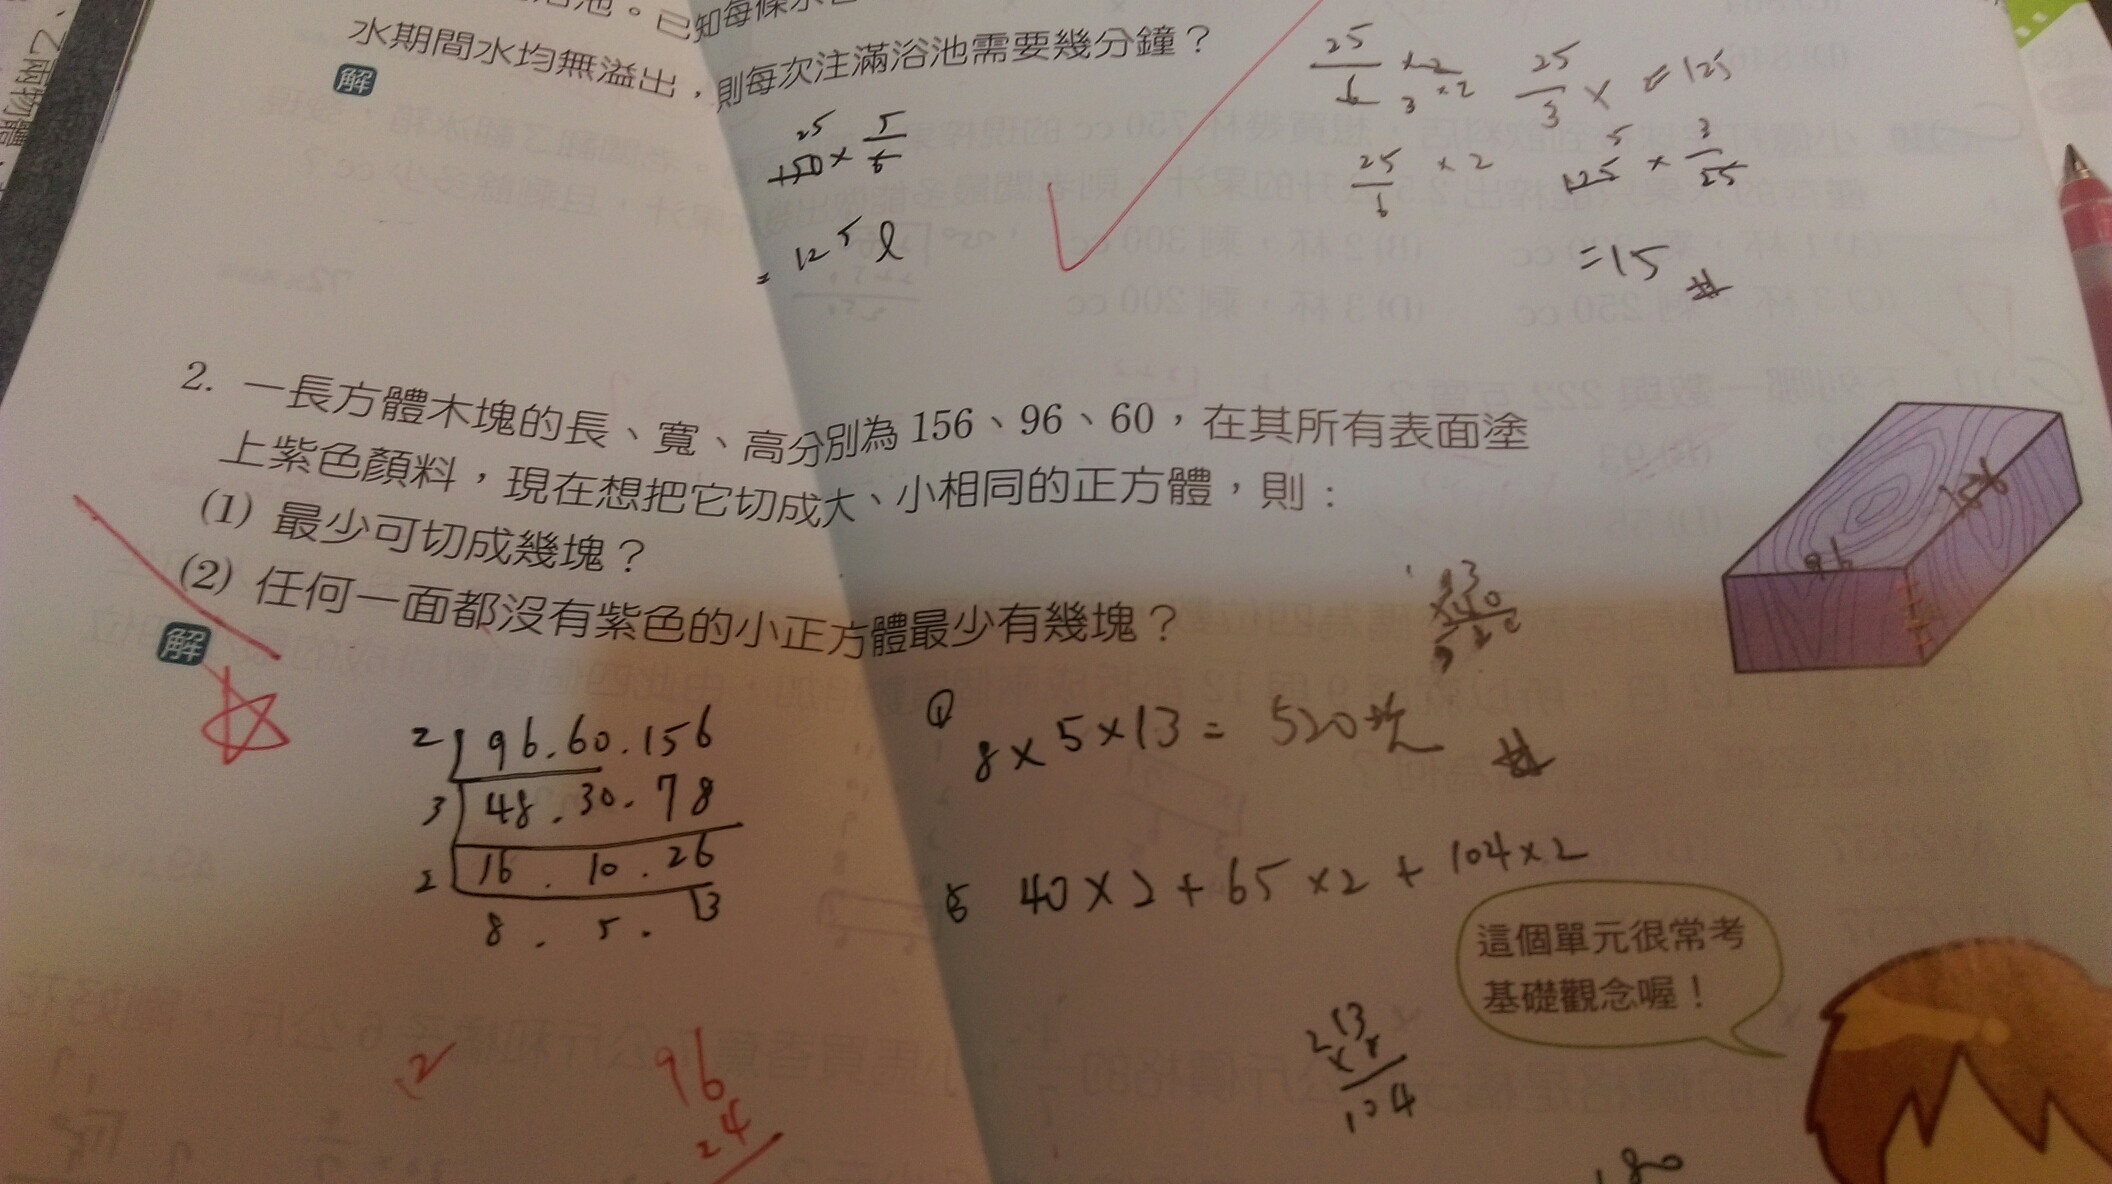 水期間水均無溢出，則每次注滿浴池需要幾分鐘？
解
25
150 × 5/6
= 125 l
25/6 × 2
25/3 × = 125
25/6 × 2
5
125 × 3/25
= 15 #
2. 一長方體木塊的長、寬、高分別為 156、96、60，在其所有表面塗
上紫色顏料，現在想把它切成大、小相同的正方體，則：
(1) 最少可切成幾塊？
(2) 任何一面都沒有紫色的小正方體最少有幾塊？
解
96
156
13
×40
520
2 96 . 60 . 156
3 48 . 30 . 78
2 16 . 10 . 26
8 . 5 . 13
① 8 × 5 × 13 = 520 塊 #
40 × 2 + 65 × 2 + 104 × 2
這個單元很常考
基礎觀念喔！
2 13
× 8
104
12
96
24
180